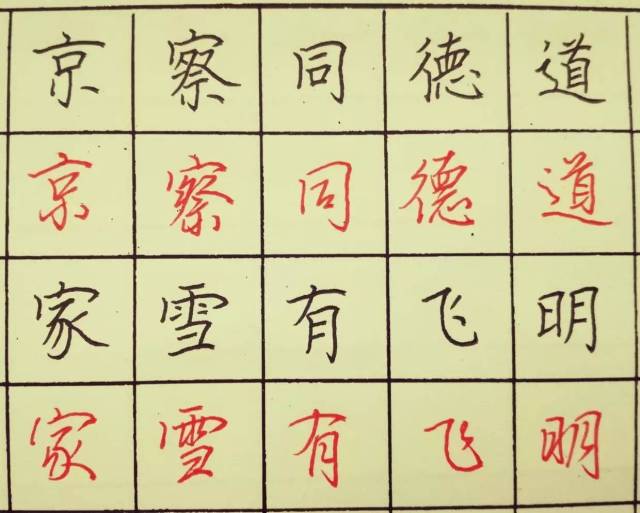 京察同德道
京察同德道
家雪有飞明
家雪有飞明